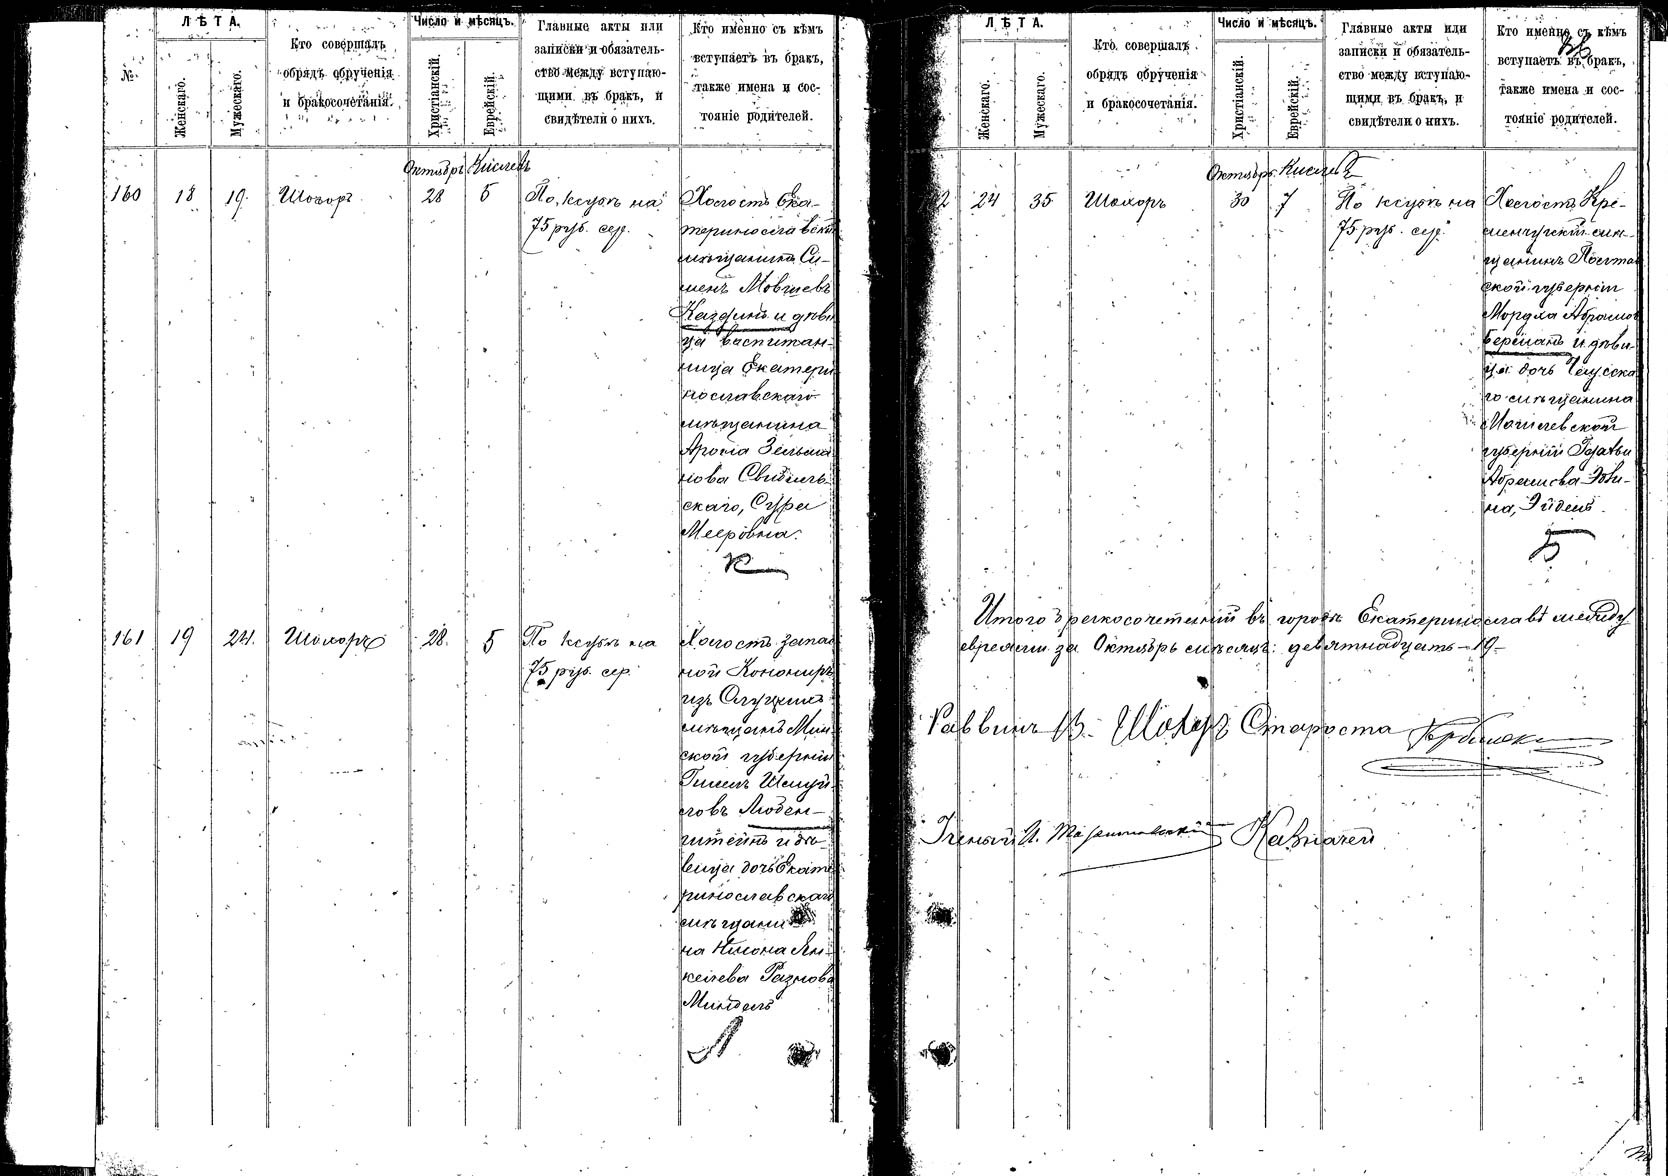 №
ЛѢТА.
Женскаго.
Мужескаго.
Кто совершалъ
обрядъ обрученія
и бракосочетанія.
Число и мѣсяцъ.
Христіанскій.
Еврейскій.
Главные акты или
записки и обязатель-
ство между вступаю-
щими въ бракъ, и
свидѣтели о нихъ.
Кто именно съ кѣмъ
вступаетъ въ бракъ,
также имена и сос-
тояніе родителей.
Октябрь Кислевъ
160 18 19. Шохоръ 28 5
По ксубѣ на
75 руб. сер.
Холостъ Ека-
теринославскій
мѣщанинъ Си-
менъ Мовшевъ
Каздинъ и дѣви
ца воспитан-
ница Екатери
нославскаго
мѣщанина
Арона Зельма
нова
скаго, Сура
Мееровна.
К
161 19 24. Шохоръ 28. 5
По ксубѣ на
75 руб. сер.
Холостъ запас
ной Канониръ
изъ Слуцкихъ
мѣщанъ Мин-
ской губерніи
Шмуй-
ловъ Люден-
штейнъ и дѣ-
вица дочь Екате
ринославскаго
мѣщани
на Ян-
келева
Миндель
Л
ЛѢТА.
Женскаго.
Мужескаго.
Кто совершалъ
обрядъ обрученія
и бракосочетанія.
Число и мѣсяцъ.
Христіанскій.
Еврейскій.
Главные акты или
записки и обязатель-
ство между вступаю-
щими въ бракъ, и
свидѣтели о нихъ.
Кто именно съ кѣмъ
вступаетъ въ бракъ,
также имена и сос-
тояніе родителей.
Октябрь Кислевъ
162 24 35 Шохоръ 30 7
По ксубѣ на
75 руб. сер.
Холостъ, Кре-
менчугскій мѣ-
щанинъ Полтав
ской губерніи
Мордха Абрамовъ
Берманъ и дѣви-
ца дочь Чаусска
го мѣщанина
Могилевской
губерніи
Абрамова
на, Эйдель.
Б
Итого бракосочетаній въ городѣ Екатеринославѣ между
евреями за Октябрь мѣсяцъ: девятнадцать – 19 –
Раввинъ В. Шохоръ Староста
Ученый И. Казначей